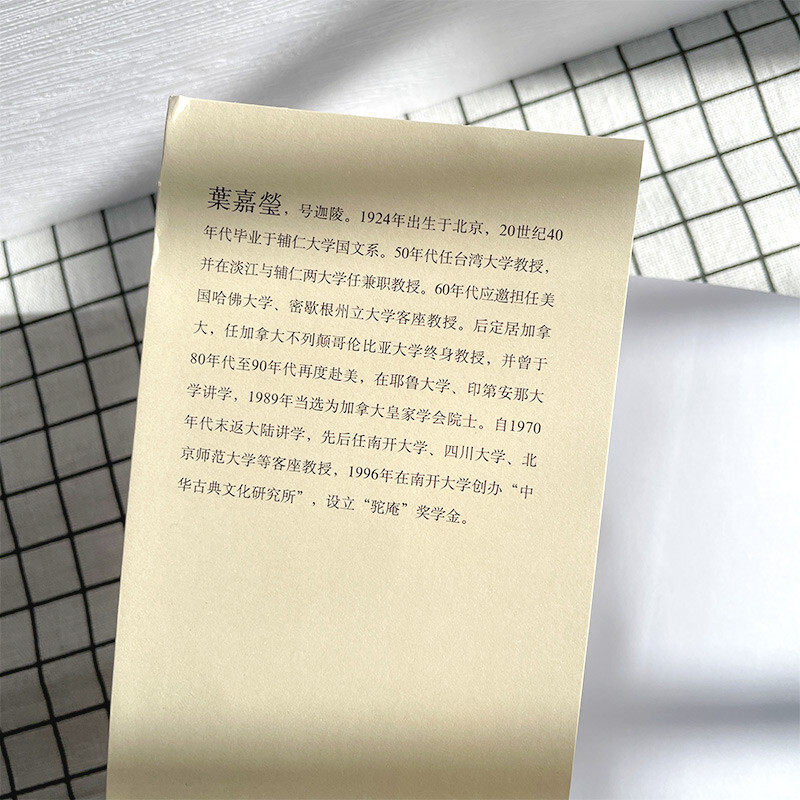 葉嘉瑩，号迦陵。1924年出生于北京，20世纪40
年代毕业于辅仁大学国文系。50年代任台湾大学教授，
并在淡江与辅仁两大学任兼职教授。60年代应邀担任美
国哈佛大学、密歇根州立大学客座教授。后定居加拿
大，任加拿大不列颠哥伦比亚大学终身教授，并曾于
80年代至90年代再度赴美，在耶鲁大学、印第安那大
学讲学，1989年当选为加拿大皇家学会院士。自1970
年代末返大陆讲学，先后任南开大学、四川大学、北
京师范大学等客座教授，1996年在南开大学创办“中
华古典文化研究所”，设立“驼庵”奖学金。